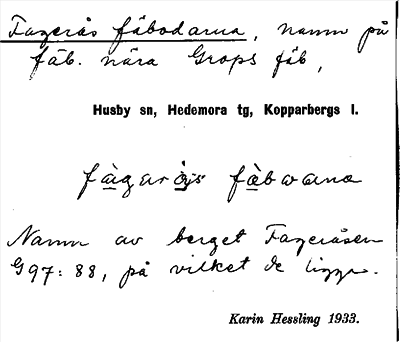 Fageråsfäbodarna, namn på
fäb. nära Grops fäb,
Husby sn, Hedemora tg, Kopparbergs l.
Namn av berget Fageråsen
G 97: 88, på vilket de ligga.
Karin Hessling 1933.